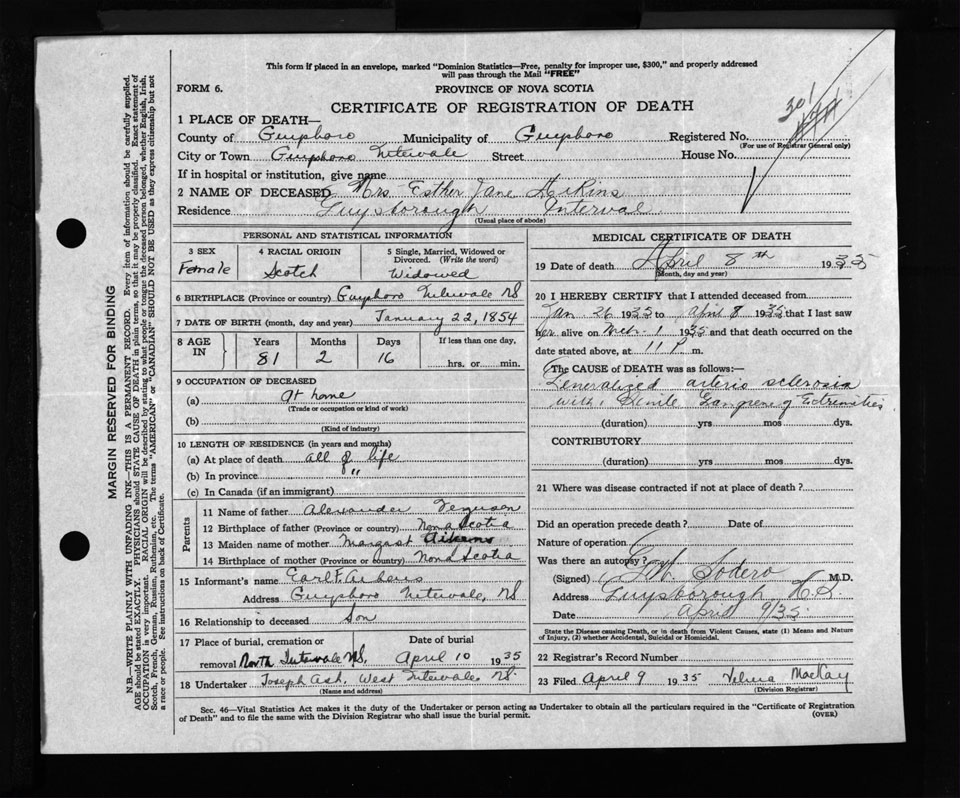 This form if placed in an envelope, marked "Dominion Statistics—Free, penalty for improper use, $300," and properly addressed
will pass through the Mail "FREE"
FORM 6.
PROVINCE OF NOVA SCOTIA
CERTIFICATE OF REGISTRATION OF DEATH
301
1 PLACE OF DEATH—
County of Guysboro Municipality of Guysboro Registered No.
(For use of Registrar General only)
City or Town Guysboro Intervale Street House No.
If in hospital or institution, give name
2 NAME OF DECEASED Mrs. Esther Jane Aikins
Residence Guysborough Interval
(Usual place of abode)
PERSONAL AND STATISTICAL INFORMATION
3 SEX 4 RACIAL ORIGIN 5 Single, Married, Widowed or Divorced. (Write the word)
Female Scotch Widowed
6 BIRTHPLACE (Province or country) Guysboro Intervale NS
7 DATE OF BIRTH (month, day and year) January 22, 1854
8 AGE IN Years Months Days If less than one day,
81 2 16 hrs. or min.
9 OCCUPATION OF DECEASED
(a) At home
(Trade or occupation or kind of work)
(b)
(Kind of industry)
10 LENGTH OF RESIDENCE (in years and months)
(a) At place of death all of life
(b) In province "
(c) In Canada (if an immigrant)
Parents
11 Name of father Alexander Ferguson
12 Birthplace of father (Province or country) Nova Scotia
13 Maiden name of mother Margaret Aikens
14 Birthplace of mother (Province or country) Nova Scotia
15 Informant's name Earl F. Aikens
Address Guysboro Intervale, NS
16 Relationship to deceased Son
17 Place of burial, cremation or removal North Intervale NS. Date of burial April 10 1935
18 Undertaker Joseph Ash, West Intervale NS.
(Name and address)
MEDICAL CERTIFICATE OF DEATH
19 Date of death April 8th 1935
(Month, day and year)
20 I HEREBY CERTIFY that I attended deceased from
Jan 26 1935 to April 8 1935 that I last saw
her alive on Mch 1 1935 and that death occurred on
date stated above, at 11 P. m.
The CAUSE OF DEATH was as follows:—
Generalized arterio sclerosis
with Senile Gangrene of Extremities
(duration) yrs mos dys.
CONTRIBUTORY
(duration) yrs. mos. dys.
21 Where was disease contracted if not at place of death?
Did an operation precede death? Date of
Nature of operation
Was there an autopsy?
(Signed) Sodero M.D.
Address Guysborough N.S.
Date April 9/35
State the Disease causing Death, or in death from Violent Causes, state (1) Means and Nature
of Injury, (2) whether Accidental, Suicidal or Homicidal.
22 Registrar's Record Number
23 Filed April 9 1935 Velma MacKay
(Division Registrar)
Sec. 46—Vital Statistics Act makes it the duty of the Undertaker or person acting as Undertaker to obtain all the particulars required in the "Certificate of Registration
of Death" and to file the same with the Division Registrar who shall issue the burial permit.
(OVER)
MARGIN RESERVED FOR BINDING
N.B.—WRITE PLAINLY WITH UNFADING INK—THIS IS A PERMANENT RECORD. Every item of information should be carefully supplied.
AGE should be stated EXACTLY. PHYSICIANS should STATE CAUSE OF DEATH in plain terms, so that it may be properly classified. Exact statement of
OCCUPATION is very important. RACIAL ORIGIN will be described by stating to what people or tongue the deceased person belonged, whether English, Irish,
Scotch, French, German, Russian, Ruthenian, etc. The terms "AMERICAN" or "CANADIAN" SHOULD NOT BE USED as they express citizenship but not
a race or people. See instructions on back of Certificate.